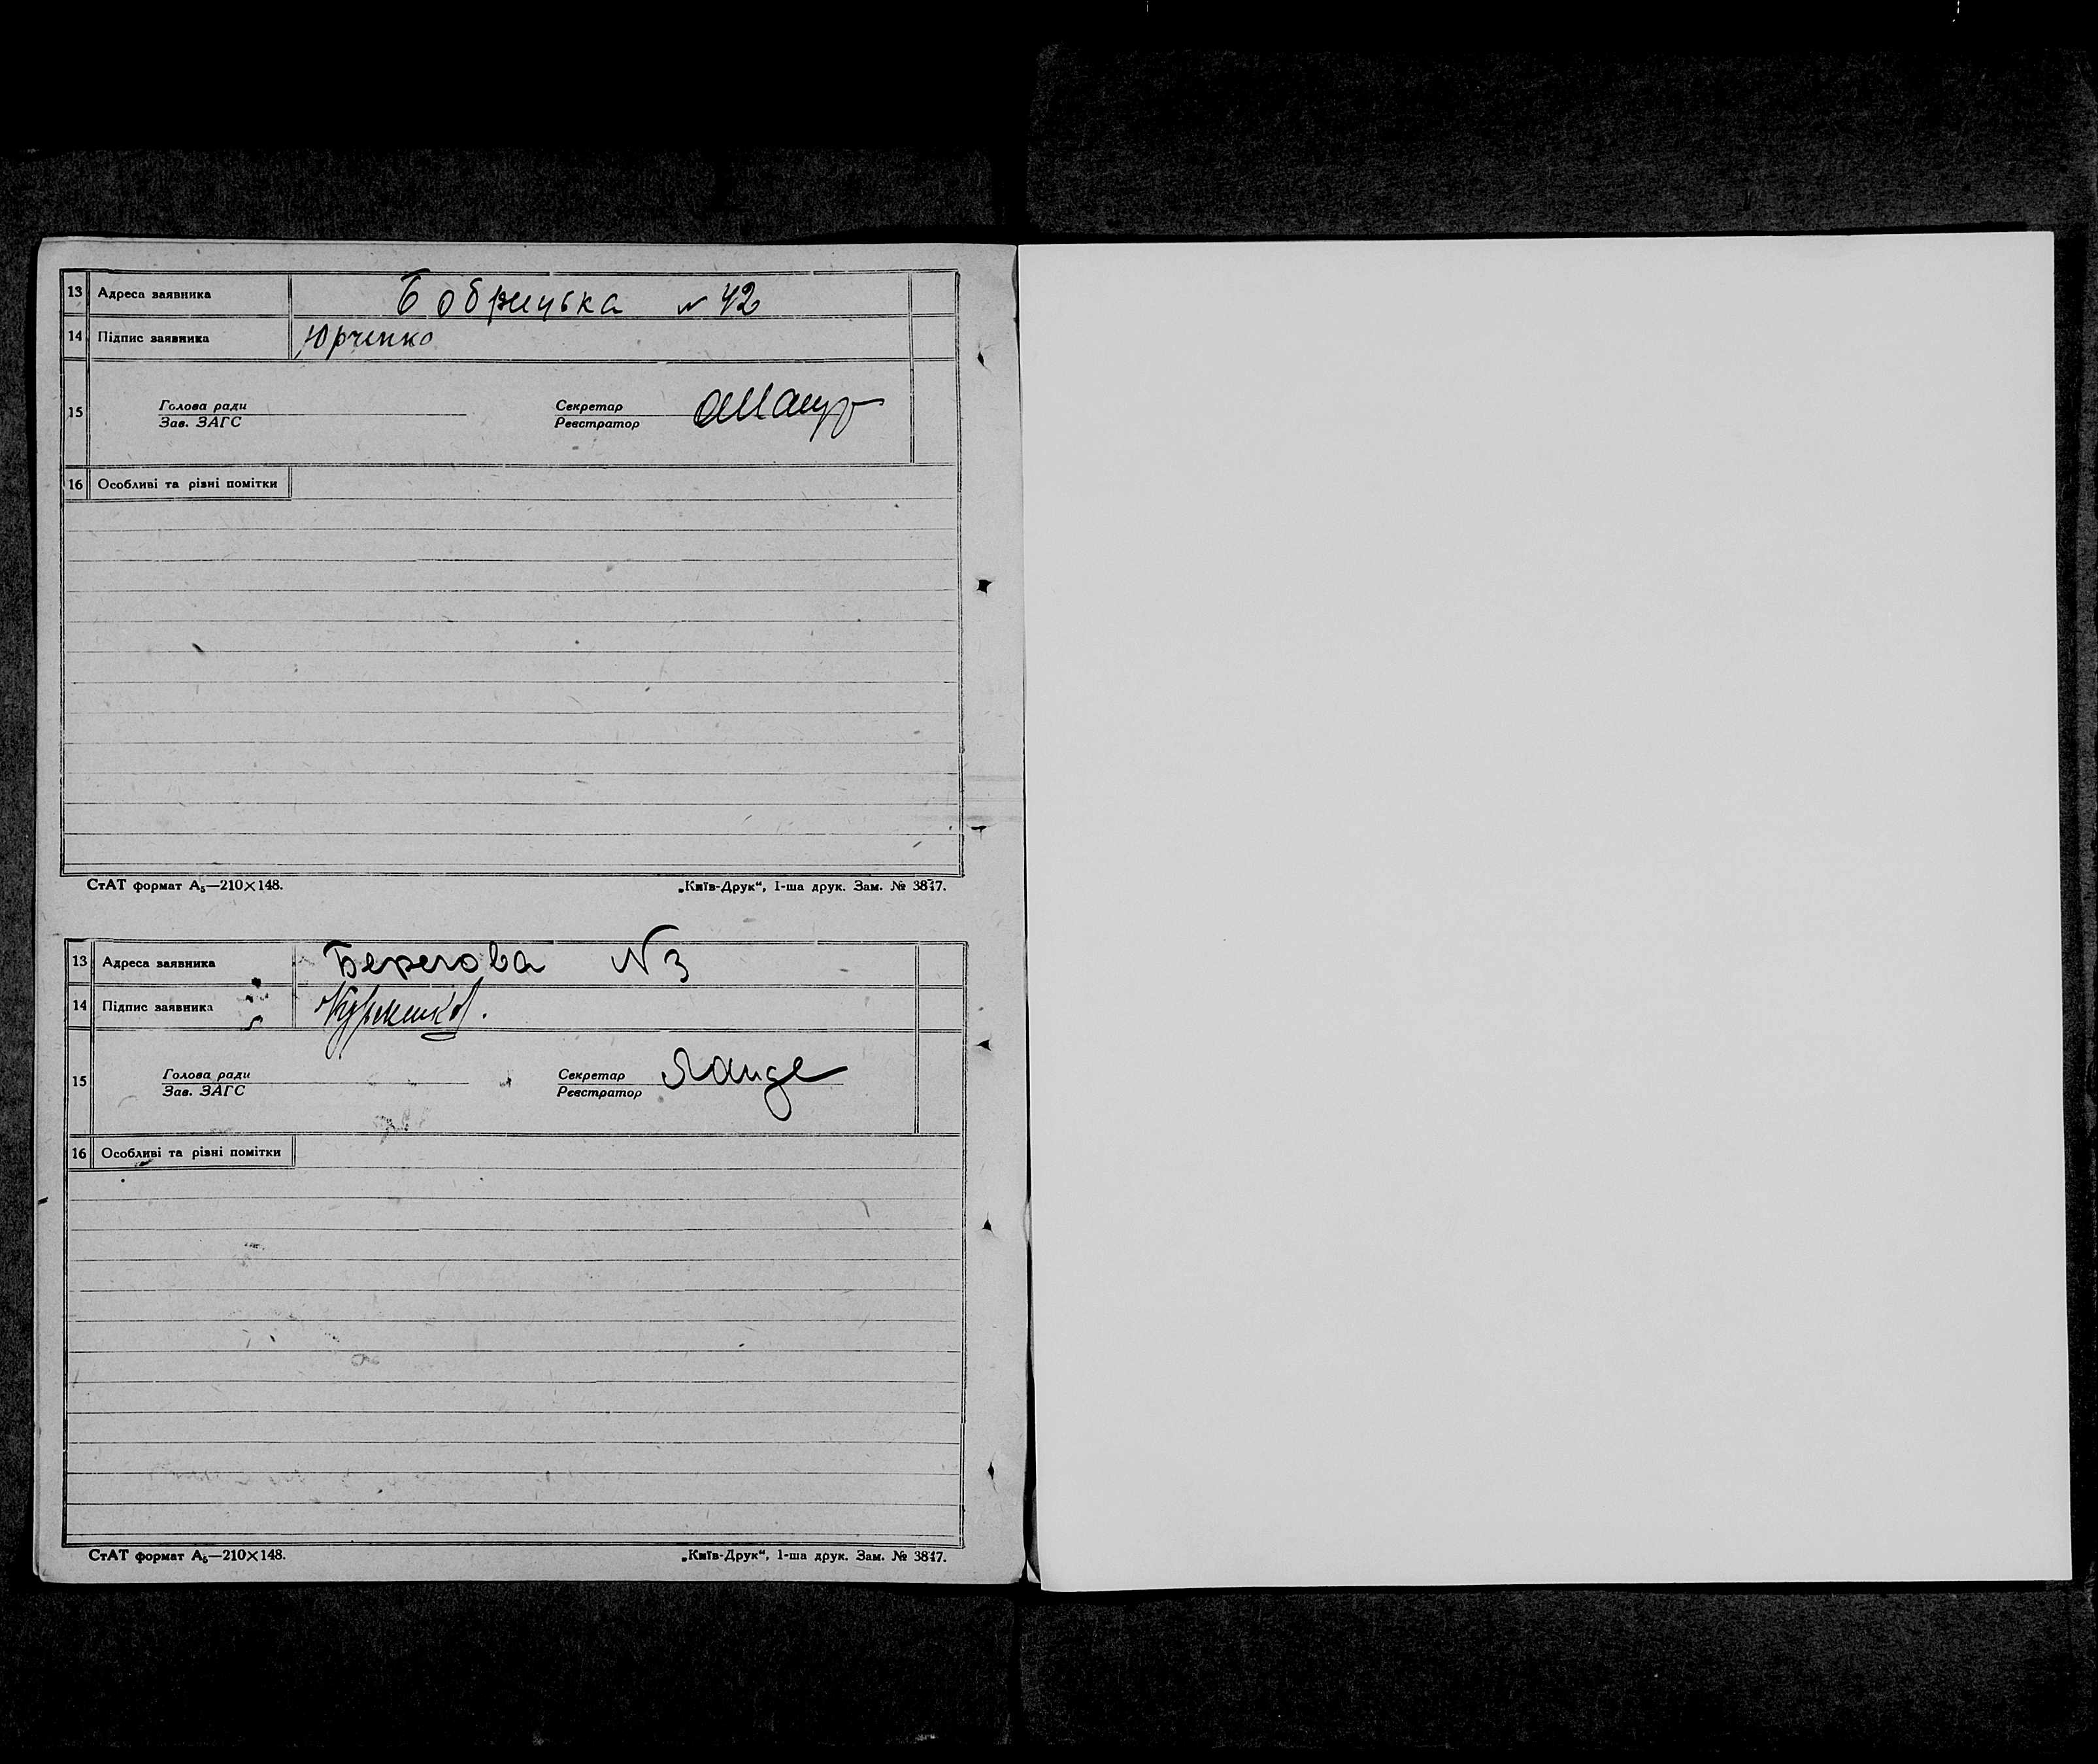 13 Адреса заявника Бобрицька № 42
14 Підпис заявника Юрченко
15 Голова ради Секретар
Зав. ЗАГС Реєстратор
16 Особливі та різні помітки
СтАТ формат А₅—210×148. „Київ-Друк“, 1-ша друк. Зам. № 3847.
13 Адреса заявника Берегова № 3
14 Підпис заявника
15 Голова ради Секретар
Зав. ЗАГС Реєстратор
16 Особливі та різні помітки
СтАТ формат А₅—210×148. „Київ-Друк“, 1-ша друк. Зам. № 3847.